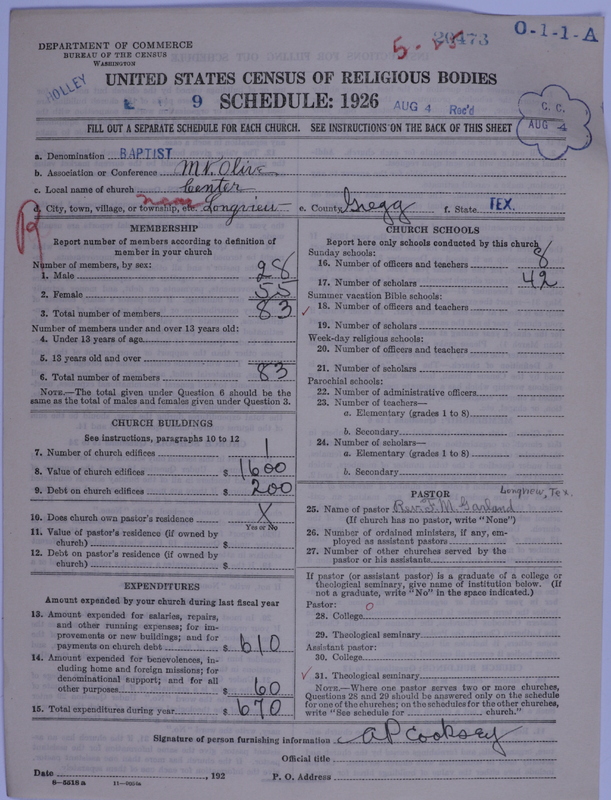 DEPARTMENT OF COMMERCE
BUREAU OF THE CENSUS
WASHINGTON
20473
O-1-1-A
HOLLEY
UNITED STATES CENSUS OF RELIGIOUS BODIES
9 SCHEDULE: 1926
AUG 4 Rec'd
C. C.
AUG 4
FILL OUT A SEPARATE SCHEDULE FOR EACH CHURCH. SEE INSTRUCTIONS ON THE BACK OF THIS SHEET
a. Denomination BAPTIST
b. Association or Conference Mt. Olive
c. Local name of church Center
d. City, town, village, or township, etc. near Longview e. County Gregg f. State TEX.
MEMBERSHIP
Report number of members according to definition of member in your church
Number of members, by sex:
1. Male 28
2. Female 55
3. Total number of members 83
Number of members under and over 13 years old:
4. Under 13 years of age
5. 13 years old and over
6. Total number of members 83
NOTE.—The total given under Question 6 should be the same as the total of males and females given under Question 3.
CHURCH BUILDINGS
See instructions, paragraphs 10 to 12
7. Number of church edifices 1
8. Value of church edifices $ 1600
9. Debt on church edifices $ 200
10. Does church own pastor's residence X
Yes or No
11. Value of pastor's residence (if owned by church) $
12. Debt on pastor's residence (if owned by church) $
EXPENDITURES
Amount expended by your church during last fiscal year
13. Amount expended for salaries, repairs, and other running expenses; for improvements or new buildings; and for payments on church debt $ 610
14. Amount expended for benevolences, including home and foreign missions; for denominational support; and for all other purposes $ 60
15. Total expenditures during year $ 670
CHURCH SCHOOLS
Report here only schools conducted by this church
Sunday schools:
16. Number of officers and teachers 8
17. Number of scholars 42
Summer vacation Bible schools:
18. Number of officers and teachers
19. Number of scholars
Week-day religious schools:
20. Number of officers and teachers
21. Number of scholars
Parochial schools:
22. Number of administrative officers
23. Number of teachers—
a. Elementary (grades 1 to 8)
b. Secondary
24. Number of scholars—
a. Elementary (grades 1 to 8)
b. Secondary
PASTOR
Longview, Tex.
25. Name of pastor Rev. F. M. Garland
(If church has no pastor, write "None")
26. Number of ordained ministers, if any, employed as assistant pastors
27. Number of other churches served by the pastor or his assistants
If pastor (or assistant pastor) is a graduate of a college or theological seminary, give name of institution below. (If not a graduate, write "No" in the space indicated.)
Pastor:
28. College
29. Theological seminary
Assistant pastor:
30. College
31. Theological seminary
NOTE.—Where one pastor serves two or more churches, Questions 28 and 29 should be answered only on the schedule for one of the churches; on the schedules for the other churches, write "See schedule for church."
Signature of person furnishing information A P Cooksey
Official title
Date , 192 P. O. Address
8-5518 a